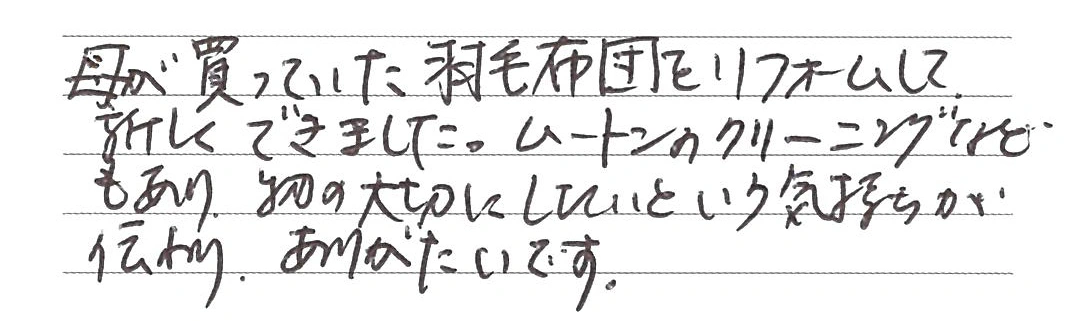 母が買っていた羽毛布団をリフォームして、
新しくできました。ムートンのクリーニングなど
もあり、物の大切にしたいという気持ちが
伝わり、ありがたいです。